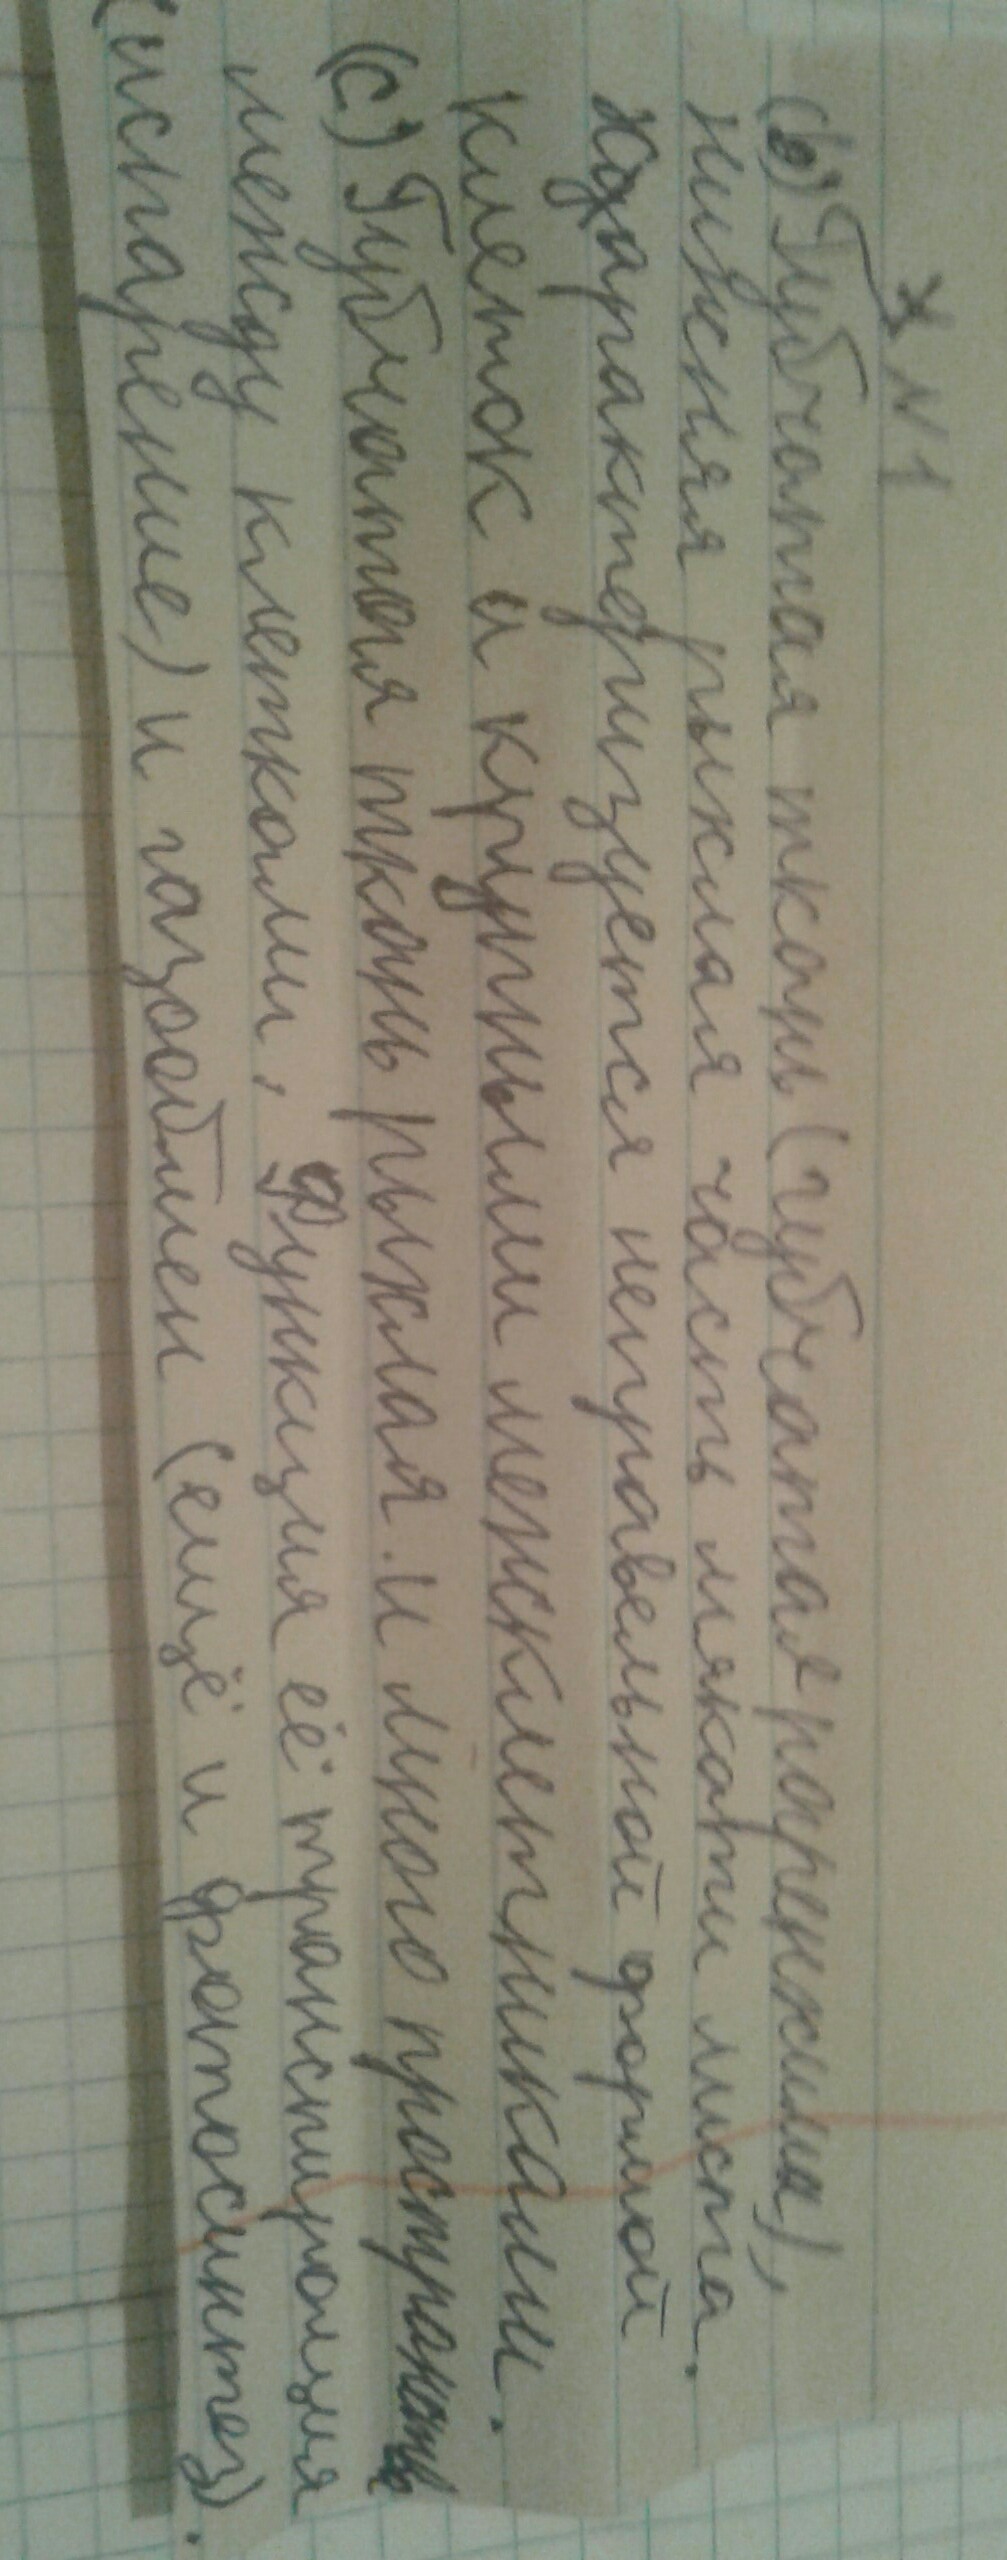 №1
(b) Губчатая ткань (губчатая паренхима),
нижняя рыхлая часть мякоти листа.
характеризуется неправельной формой
клеток и крупными межклетниками.
(c) Губчатая ткань рыхлая и много пространств
между клетками, Функция её транспирация
(испарение) и газообмен (ещё и фотосинтез).